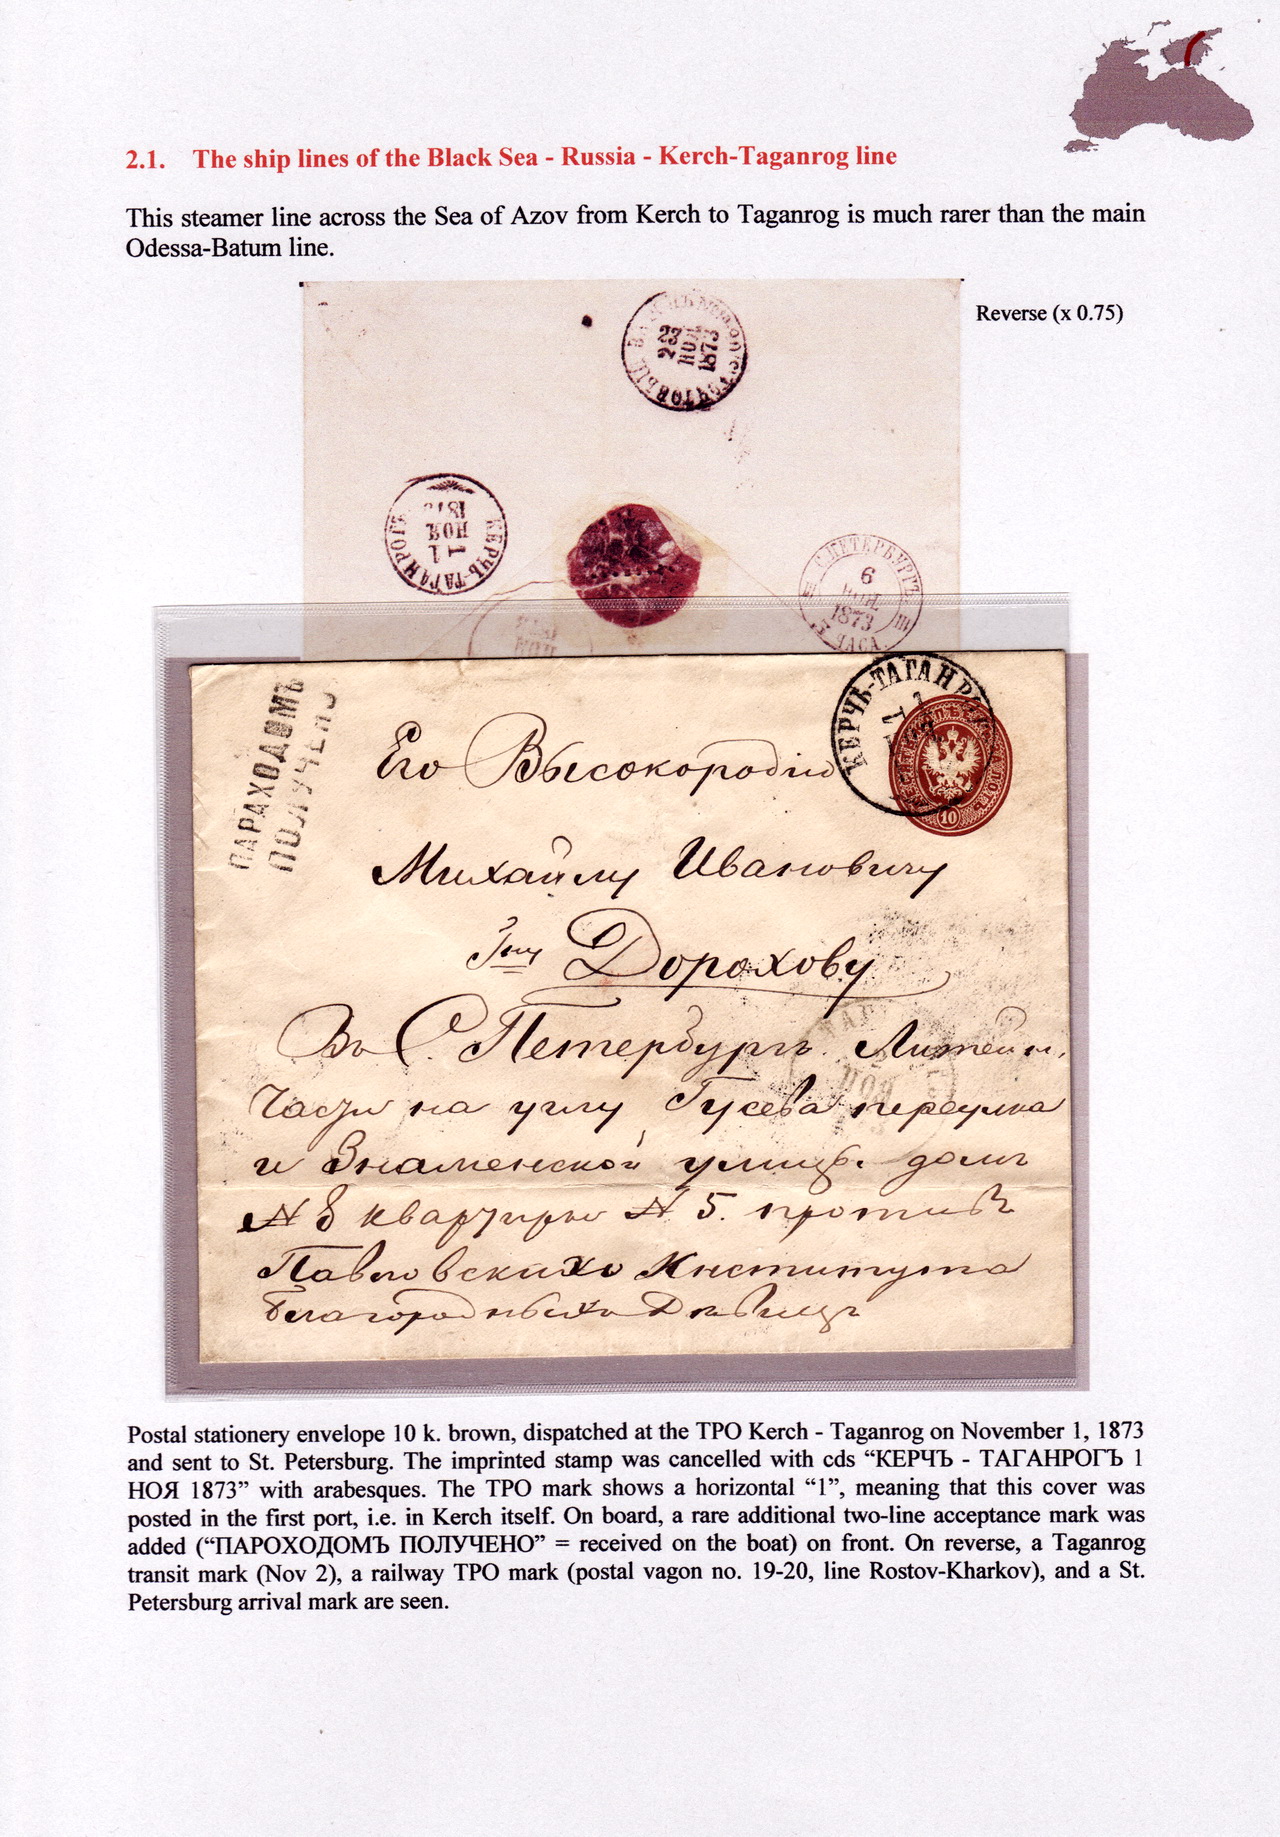 2.1. The ship lines of the Black Sea - Russia - Kerch-Taganrog line
This steamer line across the Sea of Azov from Kerch to Taganrog is much rarer than the main
Odessa-Batum line.
Reverse (x 0.75)
23
НОЯ
1873
ПОЧТОВЫЙ
КЕРЧЬ-ТАГАНРОГЪ
1
1
НОЯ
С.ПЕТЕРБУРГЪ
6
НОЯ.
1873
ЧАСА
III
КЕРЧЬ-ТАГАНР
1
10
ПАРАХОДОМЪ
ПОЛУЧЕНО
Его Высокородію
Михайлу Ивановичу
Гну Дорохову
Въ С. Петербургъ. Литейн.
Части на углу Гусева переулка
и Знаменской улицъ. домъ
№ 8 квартиры № 5. противъ
Павловскихо Института
Благородныхъ Дѣвицъ
НОЯ
Postal stationery envelope 10 k. brown, dispatched at the TPO Kerch - Taganrog on November 1, 1873
and sent to St. Petersburg. The imprinted stamp was cancelled with cds “КЕРЧЪ - ТАГАНРОГЪ 1
НОЯ 1873” with arabesques. The TPO mark shows a horizontal “1”, meaning that this cover was
posted in the first port, i.e. in Kerch itself. On board, a rare additional two-line acceptance mark was
added (“ПАРОХОДОМЪ ПОЛУЧЕНО” = received on the boat) on front. On reverse, a Taganrog
transit mark (Nov 2), a railway TPO mark (postal vagon no. 19-20, line Rostov-Kharkov), and a St.
Petersburg arrival mark are seen.